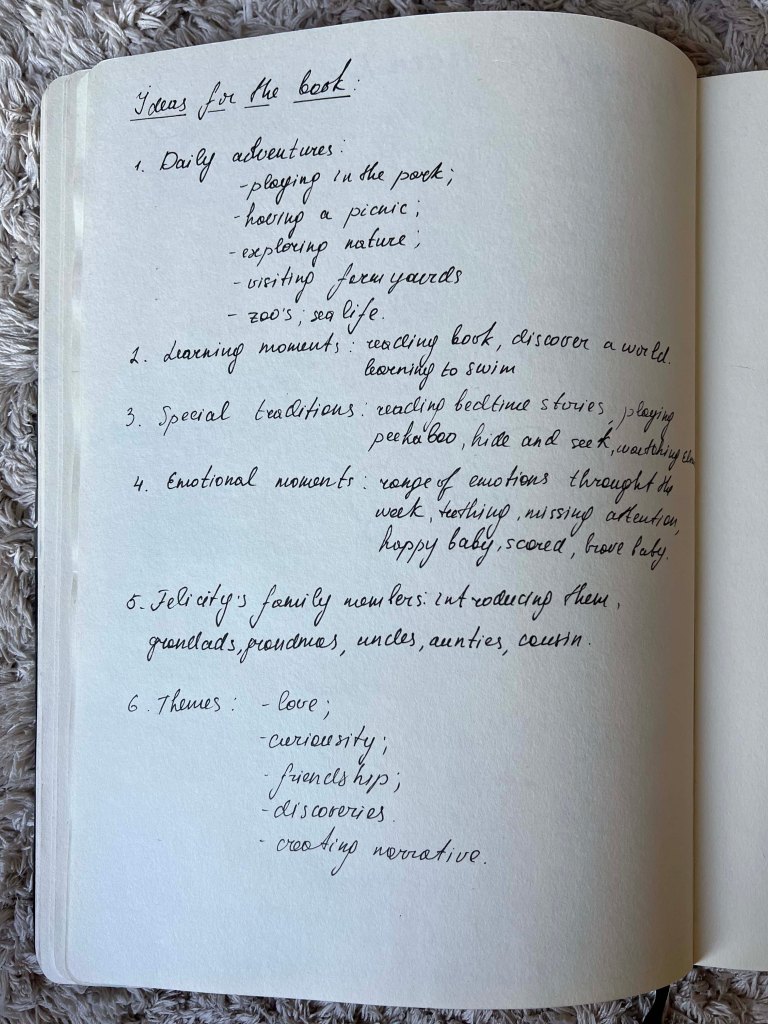 Ideas for the book:
1. Daily adventures:
- playing in the park;
- having a picnic;
- exploring nature;
- visiting farm yards
- zoo's; sea life.
2. Learning moments: reading book, discover a world.
learning to swim
3. Special traditions: reading bedtime stories, playing
peekaboo, hide and seek, watching
4. Emotional moments: range of emotions throught the
week, teething, missing attention,
happy baby, scared, brave baby.
5. Felicity's family members: introducing them,
grandads, grandmas, uncles, aunties, cousin.
6. Themes: - love;
- curiousity;
- friendship;
- discoveries.
- creating narrative.